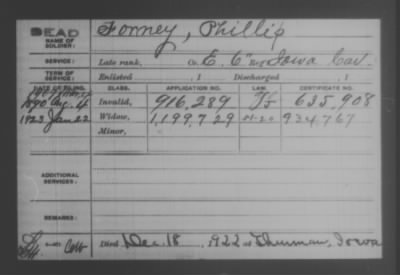 DEAD
NAME OF SOLDIER: Forney, Phillip
SERVICE: Late rank, Co. E, 6" Reg Iowa Cav.
TERM OF SERVICE: Enlisted , 1 Discharged , 1
DATE OF FILING. CLASS. APPLICATION NO. LAW. CERTIFICATE NO.
1890 Aug. 4 Invalid, 916,289 635,908
1923 Jan 22 Widow, 1,199,729 934,767
Minor,
ADDITIONAL SERVICES:
REMARKS:
Died Dec. 18, 1922 at Thurman, Iowa